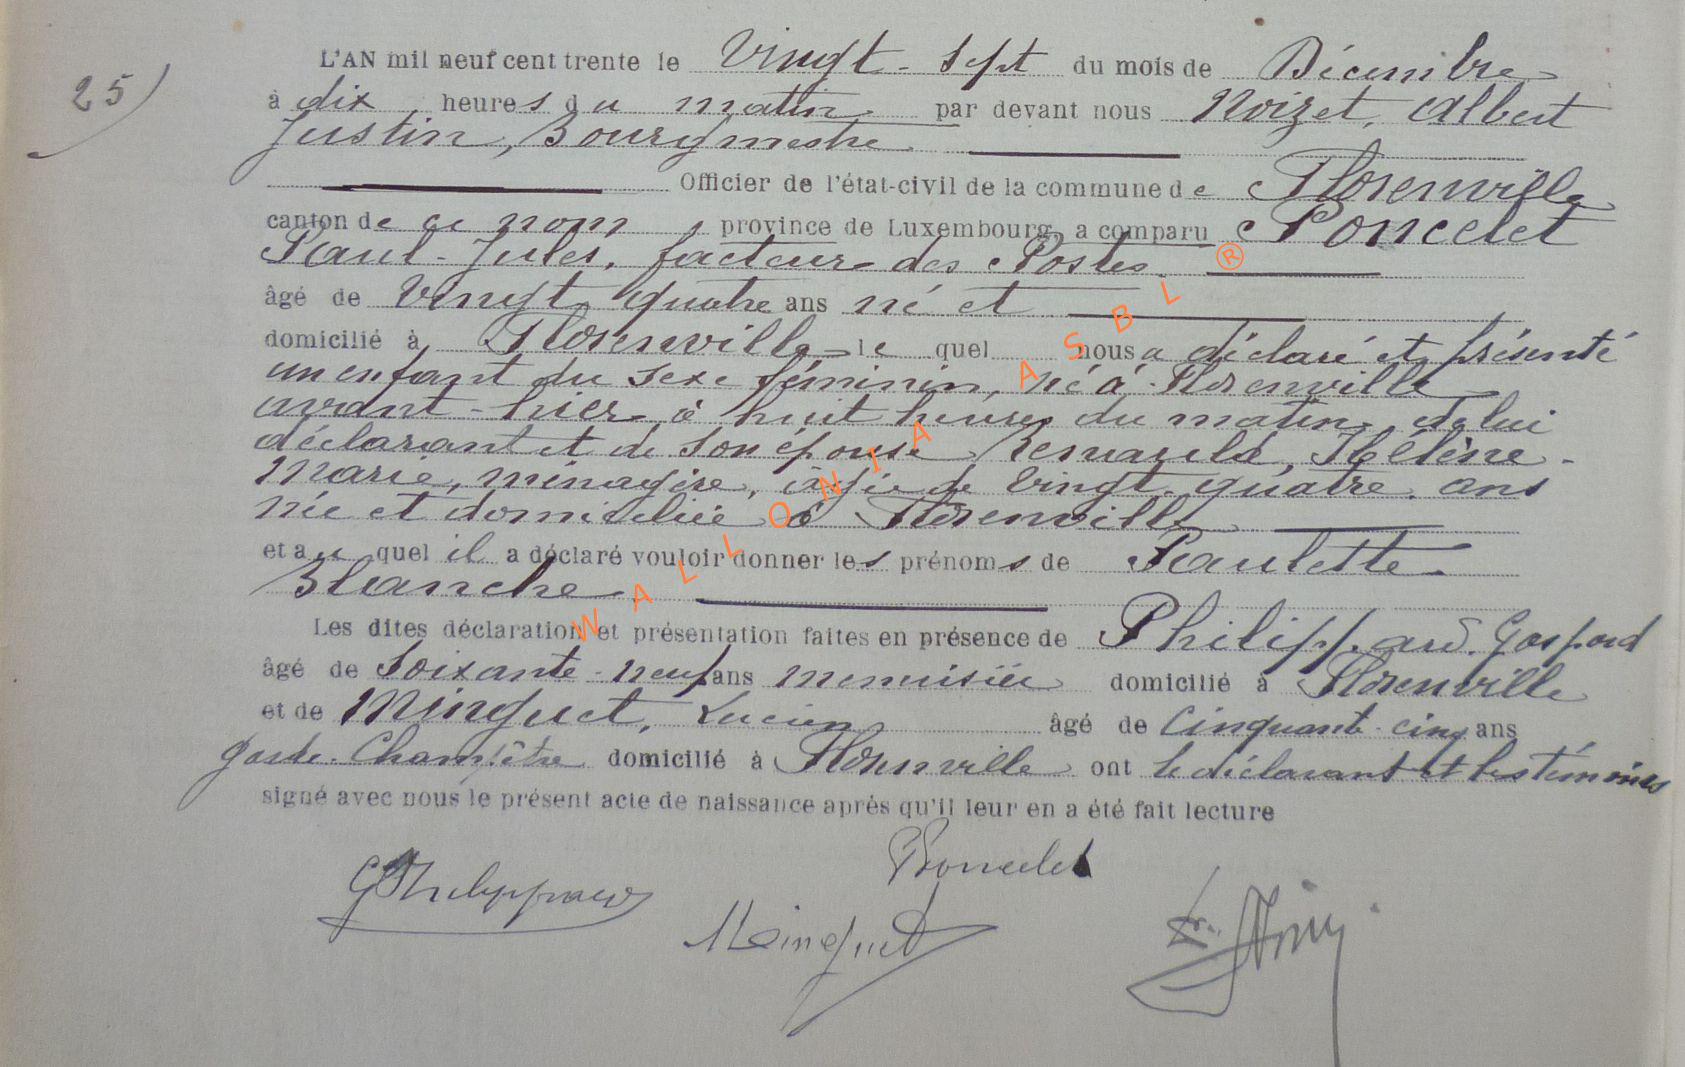 25)
L'AN mil neuf cent trente le Vingt-Sept du mois de Décembre
à dix heures du matin par devant nous Noizet, Albert
Justin, Bourgmestre
Officier de l'état-civil de la commune de Florenville
canton de ce nom province de Luxembourg a comparu Poncelet
Paul-Jules, facteur des Postes.
âgé de Vingt quatre ans né et
domicilié à Florenville lequel nous a déclaré et présenté
un enfant du sexe féminin, né à Florenville
avant-hier à huit heures du matin, de lui
déclarant et de son épouse Hélène-
Marie, ménagère, âgée de Vingt-quatre ans
née et domiciliée à Florenville
et au quel il a déclaré vouloir donner les prénoms de Paulette
Blanche
Les dites déclaration et présentation faites en présence de Philippard. Gaspard
âgé de Soixante-neuf ans menuisier domicilié à Florenville
et de Minguet, Lucien âgé de Cinquante-cinq ans
garde-Champêtre domicilié à Florenville ont le déclarant et les témoins
signé avec nous le présent acte de naissance après qu'il leur en a été fait lecture
GPhilippard
Poncelet
Minguet
WALLONIA ASBL ®